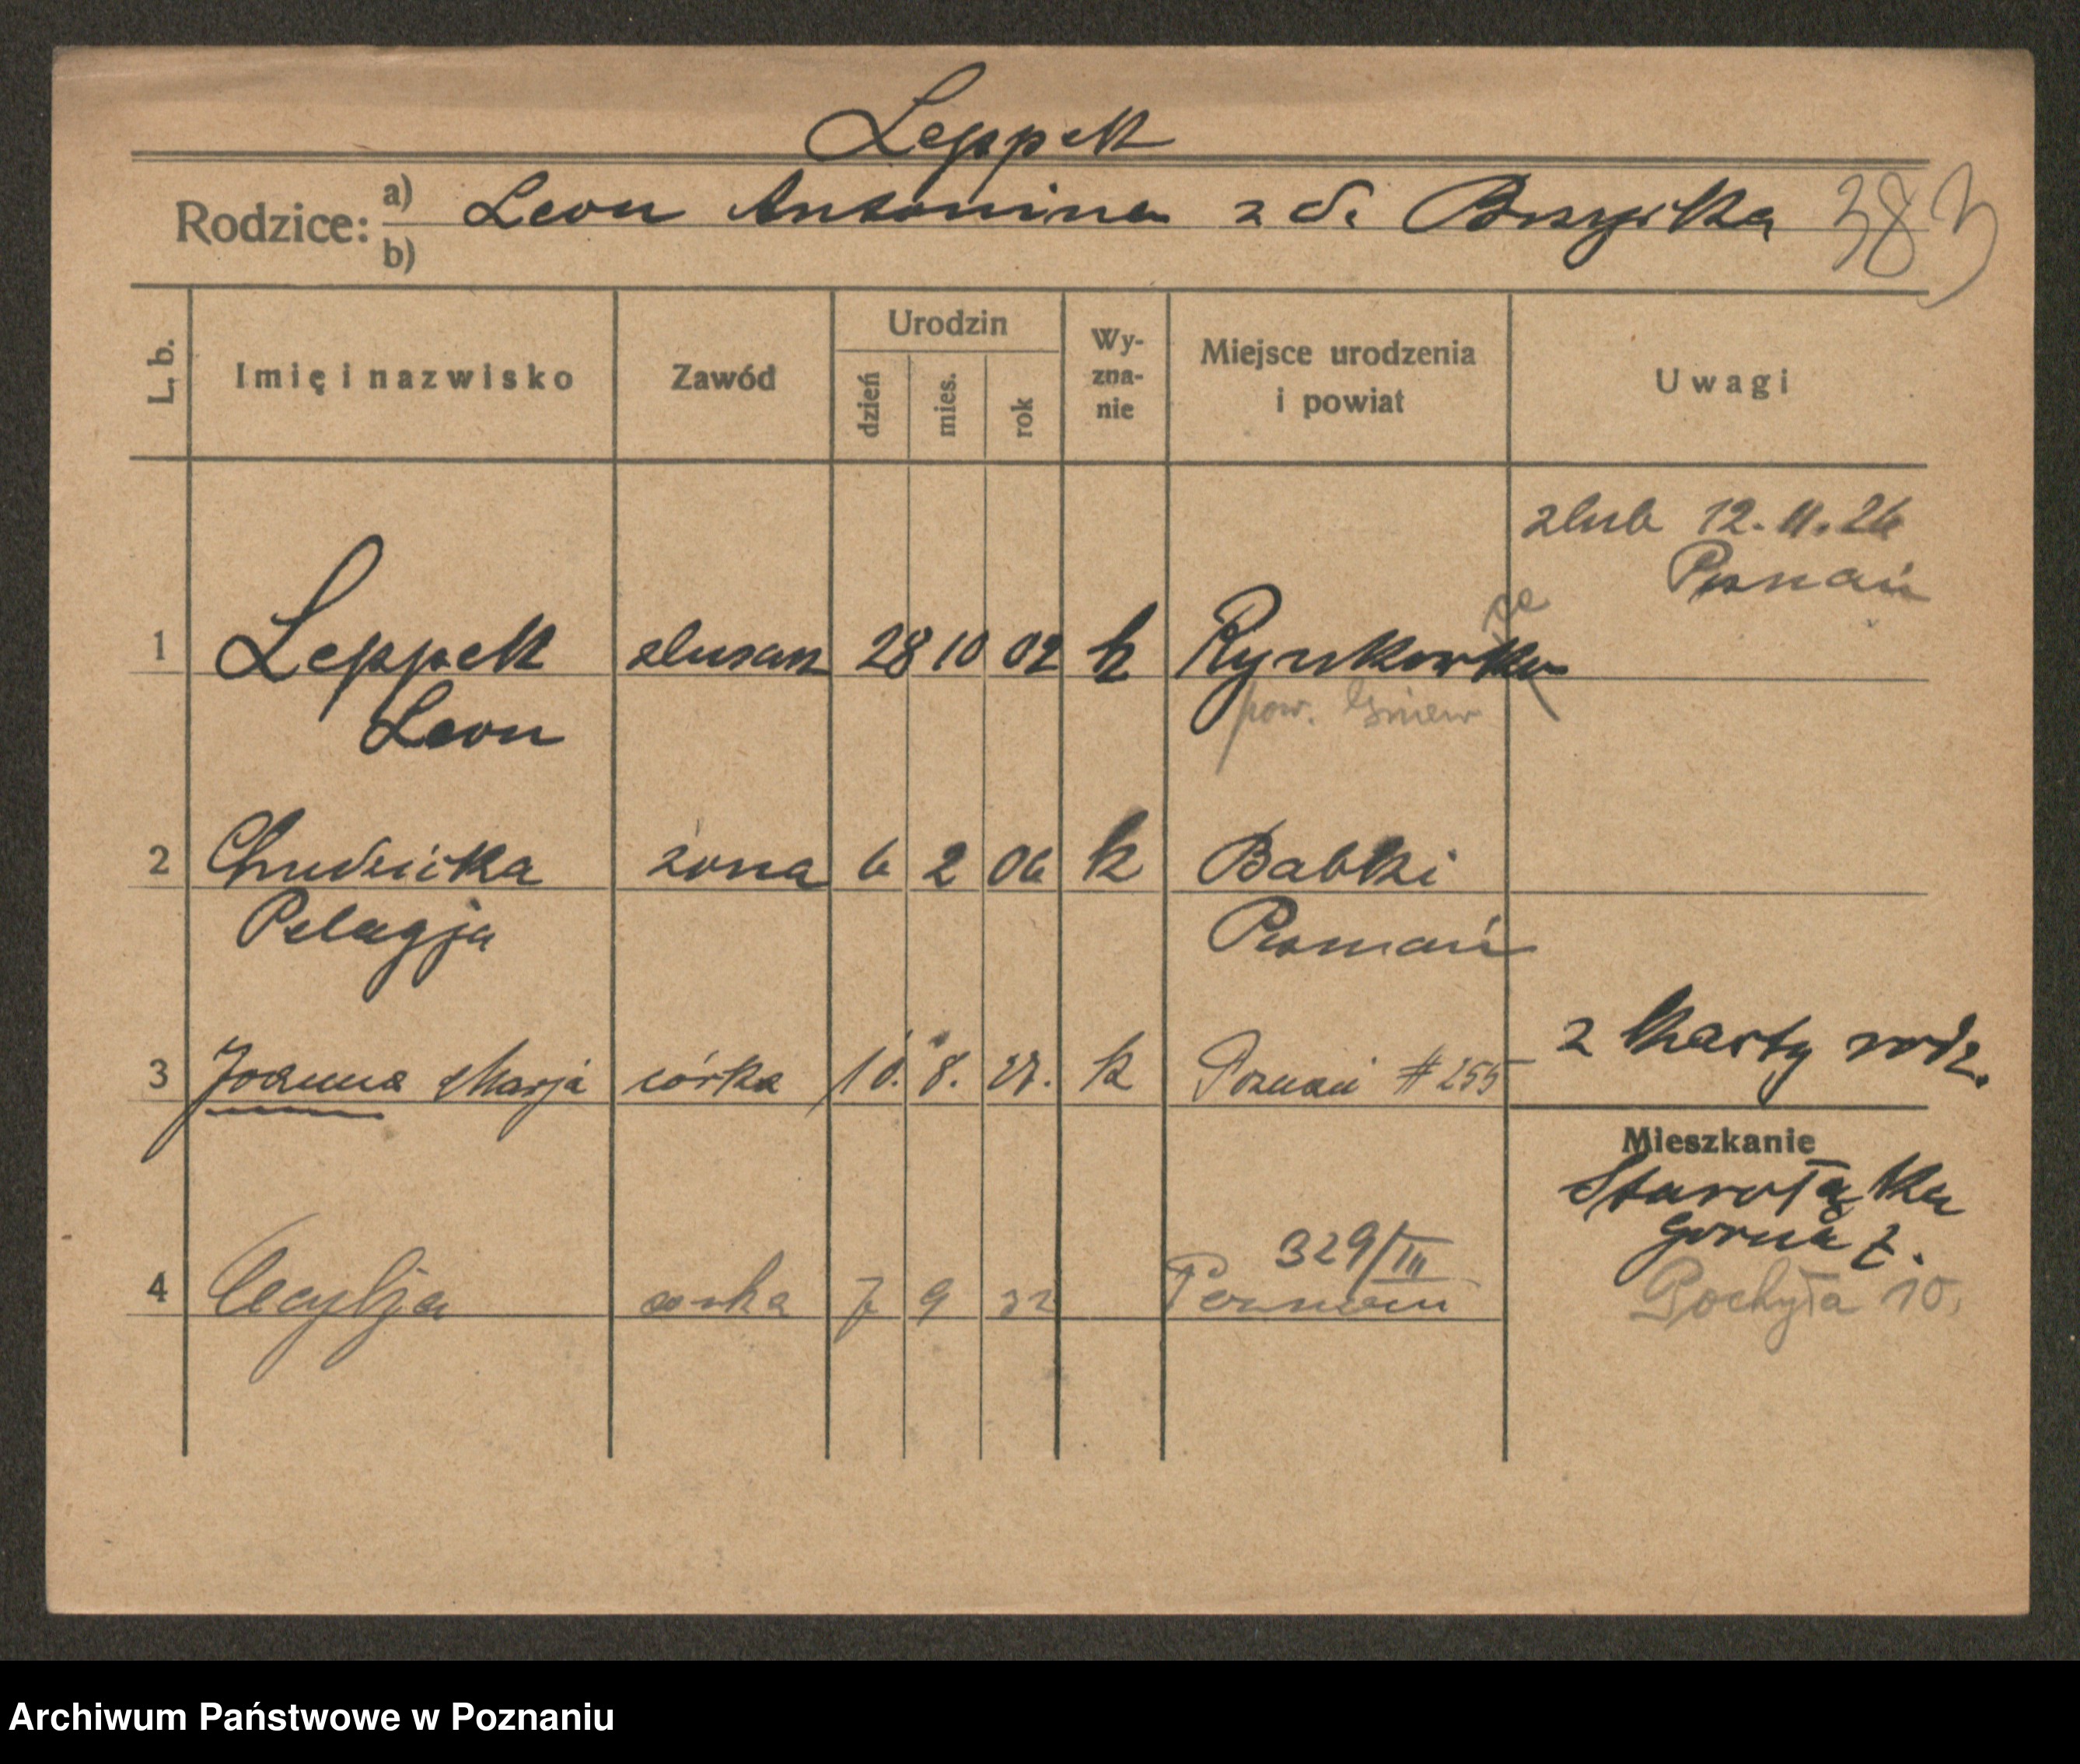 Leppek
Rodzice: a) Leon Antonina z d. Brzyska 383
b)
L. b. Imię i nazwisko Zawód Urodzin dzień mies. rok Wy-zna-nie Miejsce urodzenia i powiat Uwagi
ślub 12.11.26
Poznań
1 Leppek ślusarz 28 10 02 k Rynkowka
Leon pow. Gniew
2 Chudzicka żona 6 2 06 k Babki
Pelagja Poznań
3 Joanna Marja córka 10. 8. 27. k Poznań # 255 z karty rodz.
Mieszkanie
Starołęka
górna 7.
329/III
4 Cecylja corka 7 9 32 Poznan Pochyła 10.
Archiwum Państwowe w Poznaniu